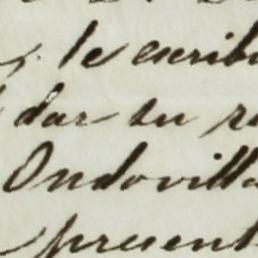 le escribi
dar su re
Ondovilla
present